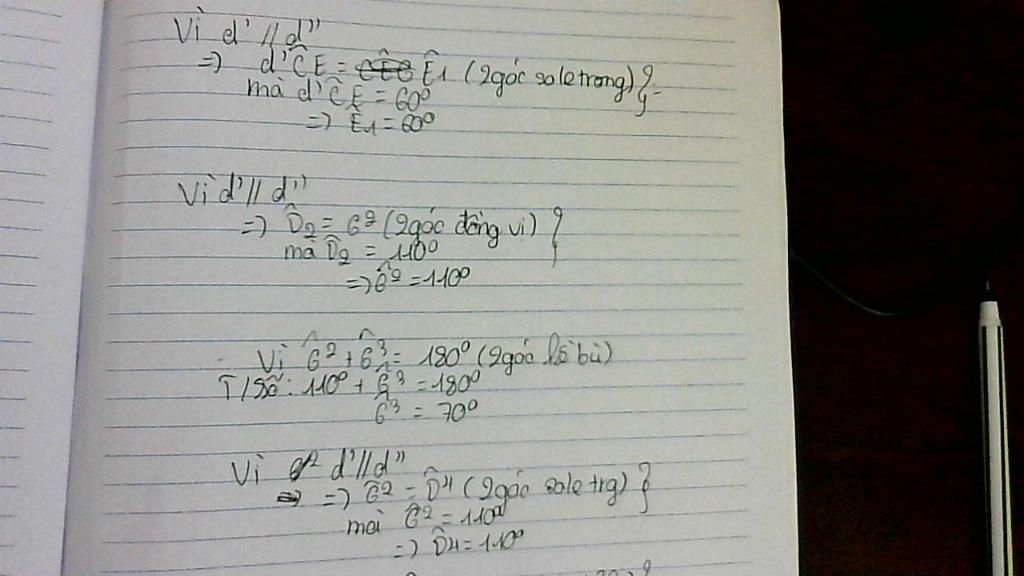 Vì d' // d''
=> d'ĈE = Ê1 (2góc so le trong) }
mà d'ĈE = 60⁰
=> Ê1 = 60⁰
Vì d' // d''
=> D̂2 = G2 (2góc đồng vị) }
mà D̂2 = 110⁰
=> Ĝ2 = 110⁰
Vì Ĝ2 + Ĝ3 = 180⁰ (2góc kề bù)
T/Số: 110⁰ + Ĝ3 = 180⁰
G3 = 70⁰
Vì d' // d''
=> Ĝ2 = D̂4 (2góc so le trg) }
mà Ĝ2 = 110⁰
=> D̂4 = 110⁰